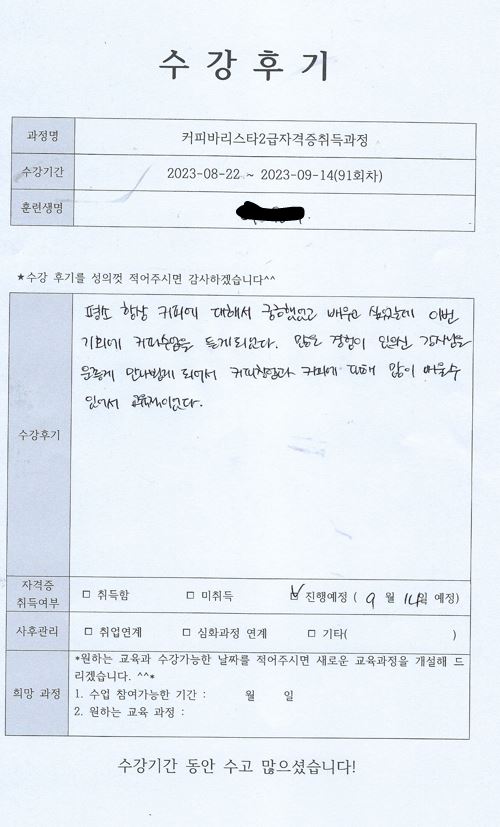 수강후기
과정명 커피바리스타2급자격증취득과정
수강기간 2023-08-22 ~ 2023-09-14(91회차)
훈련생명
★수강 후기를 성의껏 적어주시면 감사하겠습니다^^
수강후기
평소 항상 커피에 대해서 궁금했었고 배우고 싶었는데 이번
기회에 커피수업을 듣게되었다. 많은 경험이 있으신 강사님을
운좋게 만나뵙게 되어서 커피에 많이 배울수
있어서
자격증
취득여부
□ 취득함 □ 미취득 ☑ 진행예정 ( 9 월 14일 예정)
사후관리 □ 취업연계 □ 심화과정 연계 □ 기타( )
희망 과정
*원하는 교육과 수강가능한 날짜를 적어주시면 새로운 교육과정을 개설해 드
리겠습니다. ^^*
1. 수업 참여가능한 기간 : 월 일
2. 원하는 교육 과정 :
수강기간 동안 수고 많으셨습니다!